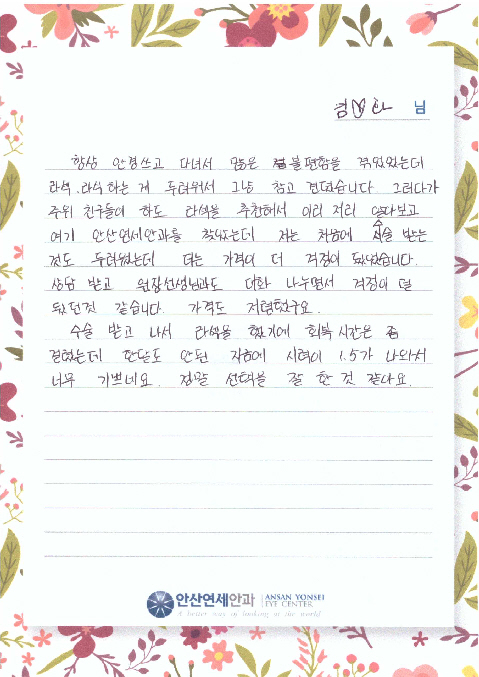 님
항상 안경쓰고 다녀서 많은 불편함을 겪었었는데
라섹, 라식 하는 게 두려워서 그냥 참고 견뎠습니다. 그러다가
주위 친구들이 하도 라섹을 추천해서 이리 저리 알아보고
여기 안산연세안과를 찾았는데 저는 처음에 수술 받는
것도 두려웠는데 더는 가격이 더 걱정이 됐었습니다.
상담 받고 원장선생님과도 대화 나누면서 걱정이 덜
됐던것 같습니다. 가격도 저렴했구요.
수술 받고 나서 라섹을 했기에 회복 시간은 좀
걸렸는데 한달도 안된 지금에 시력이 1.5가 나와서
너무 기쁘네요. 정말 선택을 잘 한 것 같아요.
안산연세안과 ANSAN YONSEI
EYE CENTER
A better way of looking at the world